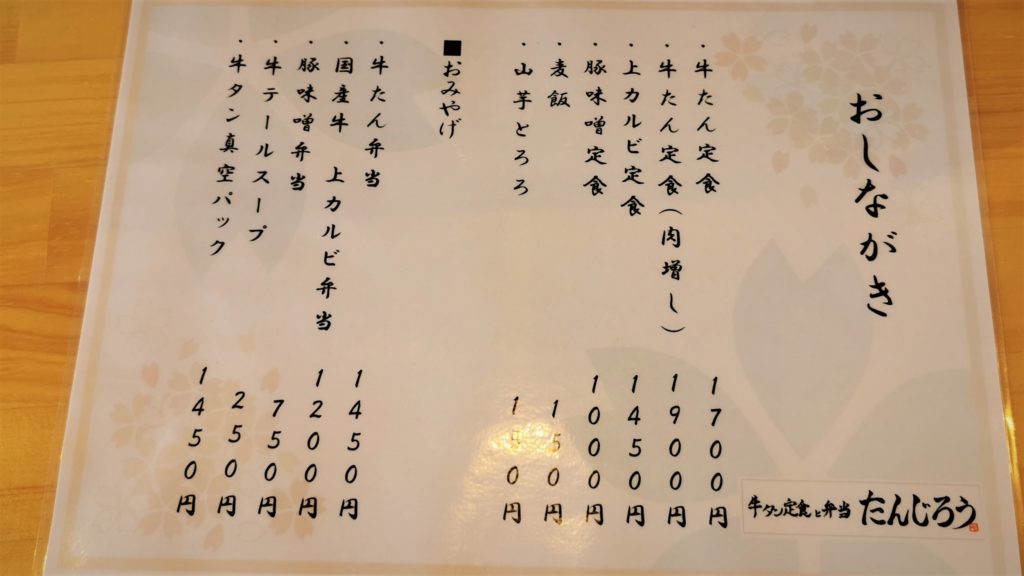 おしながき
・牛たん定食 1700円
・牛たん定食(肉増し) 1900円
・上カルビ定食 1450円
・豚味噌定食 1000円
・麦飯 150円
・山芋とろろ
■おみやげ
・牛たん弁当 1450円
・国産牛 上カルビ弁当 1200円
・豚味噌弁当 750円
・牛テールスープ 250円
・牛タン真空パック 1450円
牛タン定食と弁当 たんじろう